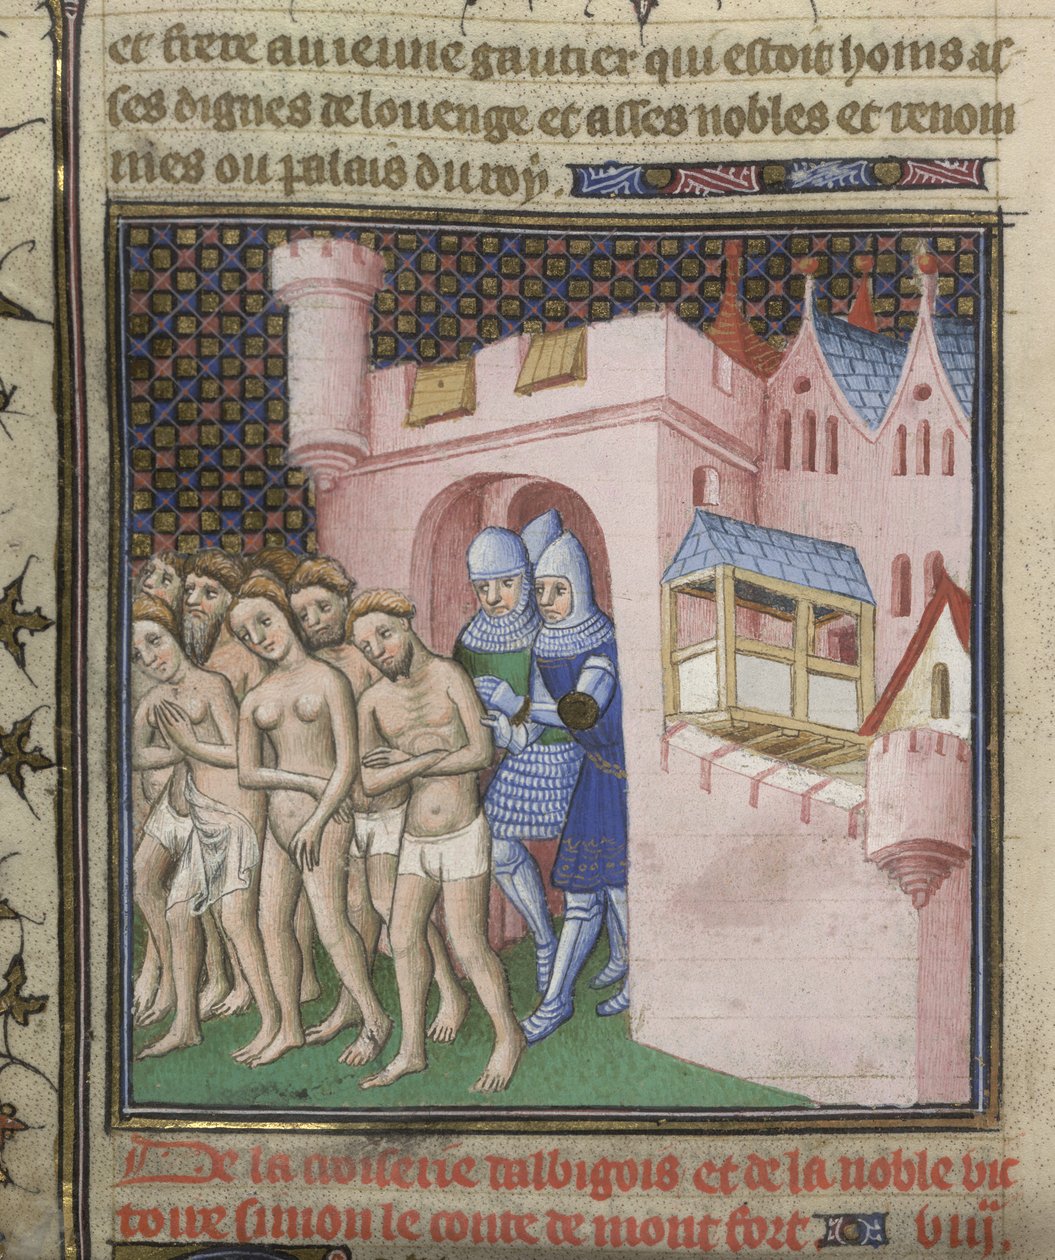 et frere au ieune gautier qui estoit homs as
ses dignes de louenge et asses nobles et renom
mes ou palais du roy.
De la tourserie dalbigois et de la noble vic
toire simon le conte de mont fort. viij.